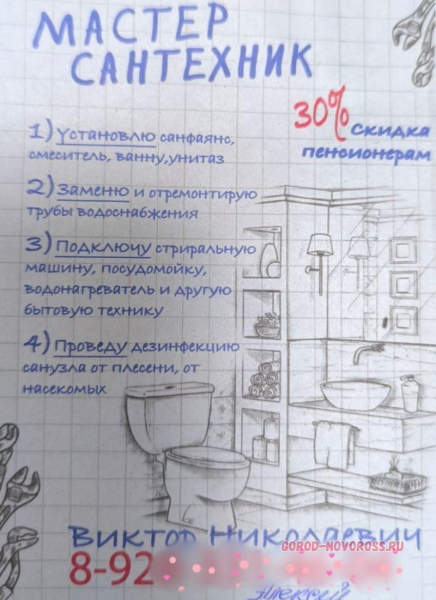 МАСТЕР
САНТЕХНИК
30%
скидка
пенсионерам
1) Установлю санфаянс,
смеситель, ванну,унитаз
2) Заменю и отремонтирую
трубы водоснабжения
3) Подключу стриральную
машину, посудомойку,
водонагреватель и другую
бытовую технику
4) Проведу дезинфекцию
санузла от плесени, от
насекомых
Виктор Николаевич
GOROD-NOVOROSS.RU
8-92